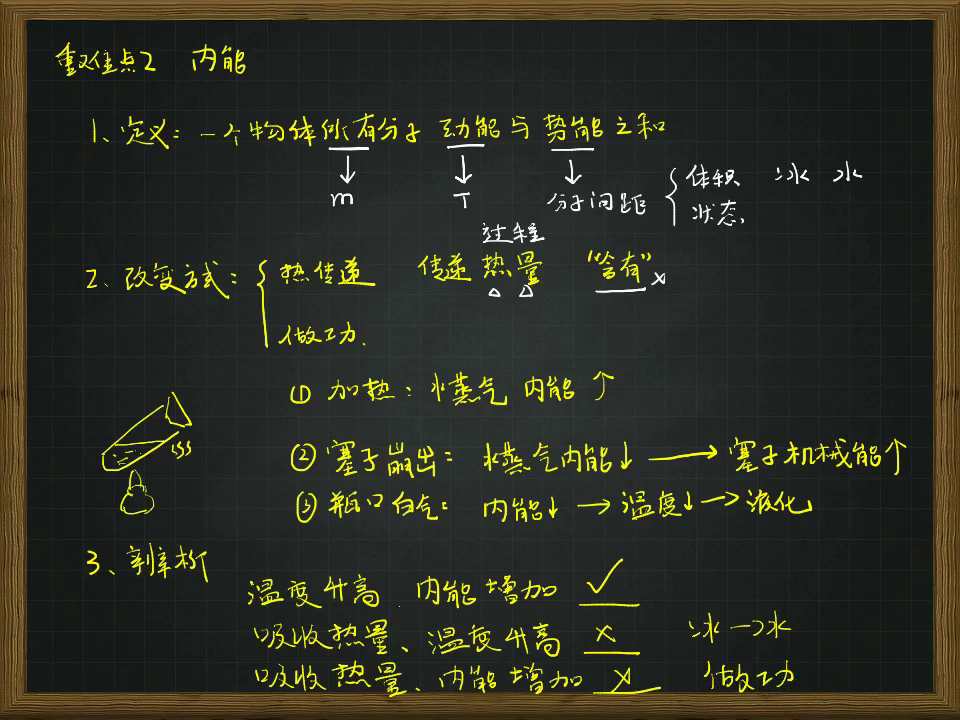 重难点2 内能
1、定义：一个物体所有分子动能与势能之和
↓ ↓ ↓
m T 分子间距 { 体积 冰 水
状态
过程
2、改变方式：{ 热传递 传递热量 “含有”×
△ △
做功.
① 加热：水蒸气 内能↑
② 塞子崩出：水蒸气内能↓ → 塞子机械能↑
③ 瓶口白气：内能↓ → 温度↓ → 液化
3、辨析
温度升高、内能增加 ✓
吸收热量、温度升高 × 冰→水
吸收热量、内能增加 × 做功